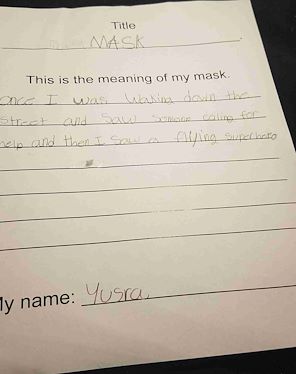 Title
MASK
This is the meaning of my mask.
once I was waking down the
street and saw somone caling for
help and then I saw a flying superhero
My name: Yusra